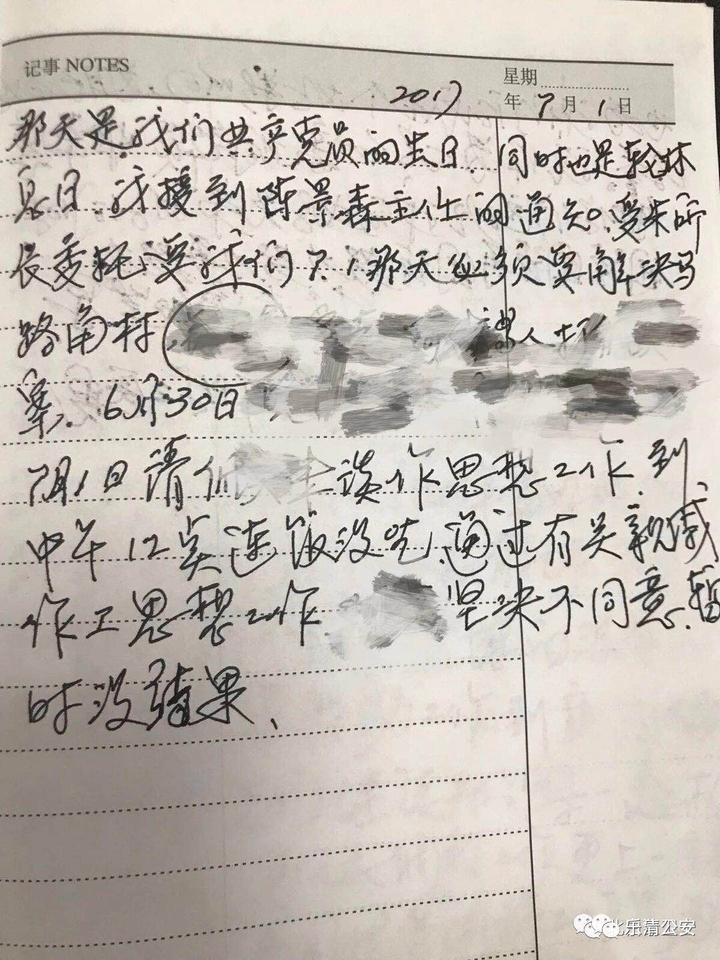 记事 NOTES
星期
2017年7月1日
那天是我们共产党员的生日、同时也是轮休
息日、我接到陈景森主任的通知、受朱所
长委托、要我们7、1那天必须要解决马
路南村
人打
案、6月30日
7月1日请他 谈作思想工作、到
中午12点连饭没吃、通过有关亲戚
作工思想工作 坚决不同意、暂
时没结果、
北乐清公安